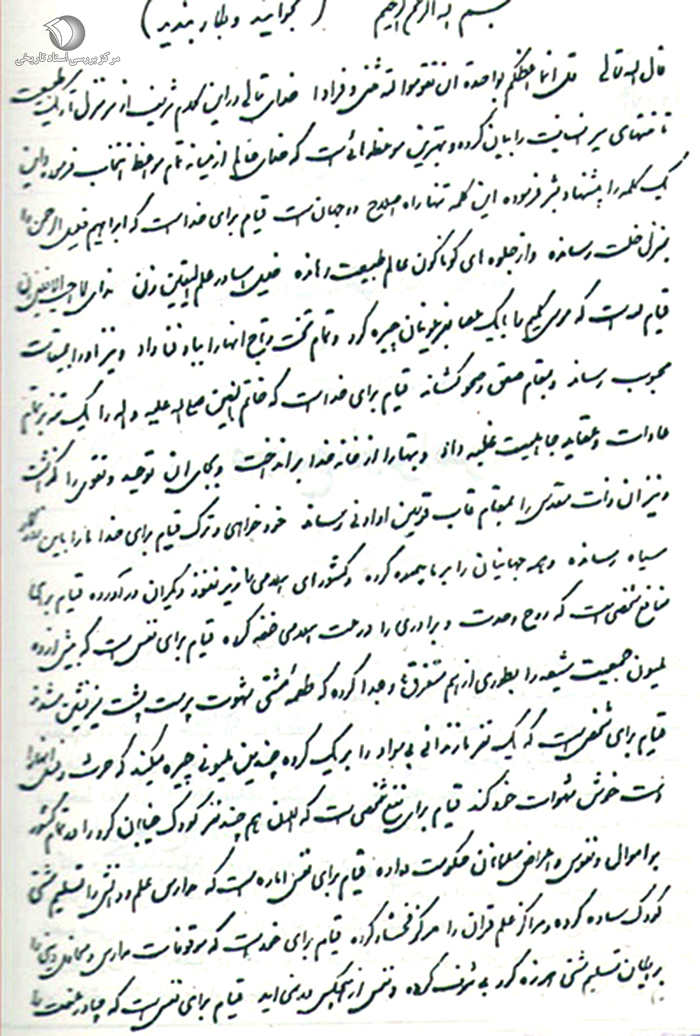 مرکز بررسی اسناد تاریخی
بسم الله الرحمن الرحیم (بخوانید و بکار بندید)
قال الله تعالی قل انما اعظکم بواحدة ان تقوموا لله مثنی و فرادا خدای تعالی در این کلام شریف از سر منزل تاریک طبیعت
تا منتهای سیر انسانیت را بیان کرده و بهترین موعظه‌هائی است که خدای عالم از میانه تمام مواعظ انتخاب فرموده و این
یک کلمه را پیشنهاد بشر فرموده این کلمه تنها راه اصلاح دو جهان است قیام برای خدا است که ابراهیم خلیل الرحمن را
بمنزل خلت رسانده و از جلوه های گوناگون عالم طبیعت رهانده خلیل آسا در علم الیقین زن ندای لا احب الافلین زن
قیام لله است که موسی کلیم را با یک عصا بفرعونیان چیره کرد و تمام تخت و تاج آنها را بباد فنا داد و نیز او را بمیقات
محبوب رساند و بمقام صعق و صحو کشاند قیام برای خدا است که خاتم النبیین صلی الله علیه و اله را یک تنه بر تمام
عادات و عقاید جاهلیت غلبه داد و بتها را از خانه خدا برانداخت و بجای آن توحید و تقوی را گذاشت
و نیز ان ذات مقدس را بمقام قاب قوسین او ادنی رساند خودخواهی و ترک قیام برای خدا ما را باین روزگار
سیاه رسانده و همه جهانیان را بر ما چیره کرده و کشورهای اسلامی را زیر نفوذ دیگران درآورده قیام برای
منافع شخصی است که روح وحدت و برادری را در ملت اسلامی خفه کرده قیام برای نفس است که بیش از ده
ملیون جمعیت شیعه را بطوری از هم متفرق و جدا کرده که طعمه مشتی شهوت پرست پشت میز نشین شدند
قیام برای شخص است که یک نفر مازندرانی بی‌سواد را بر یک گروه چندین ملیونی چیره میکند که حرث و نسل آنها را
دست خوش شهوات خود کند قیام برای نفع شخصی است که الان هم چند نفر کودک خیابان گرد را در تمام کشور
بر اموال و نفوس و اعراض مسلمانان حکومت داده قیام برای نفس اماره است که مدارس علم و دانش را تسلیم مشتی
کودک ساده کرده و مراکز علم قران را مرکز فحشاء کرده قیام برای خود است که موقوفات مدارس و محافل دینی را
برایگان تسلیم مشتی هرزه گرد بی شرف کرده و نفس از هیچکس در نمی اید قیام برای نفس است که چادر عفت را